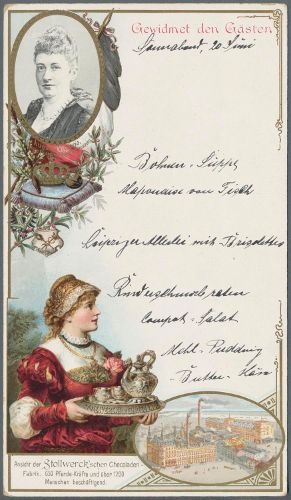 Gewidmet den Gästen
Sonnabend, 20 Juni
Bohnen-Suppe
Mayonaise von Fisch
Leipziger Allerlei mit
Rinderschmorbraten
Compot-Salat
Mehl-Pudding
Butter-Käse
Ansicht der Stollwerck'schen Chocoladen-
Fabrik. 650 Pferde-Kräfte und über 1200
Menschen beschäftigend.